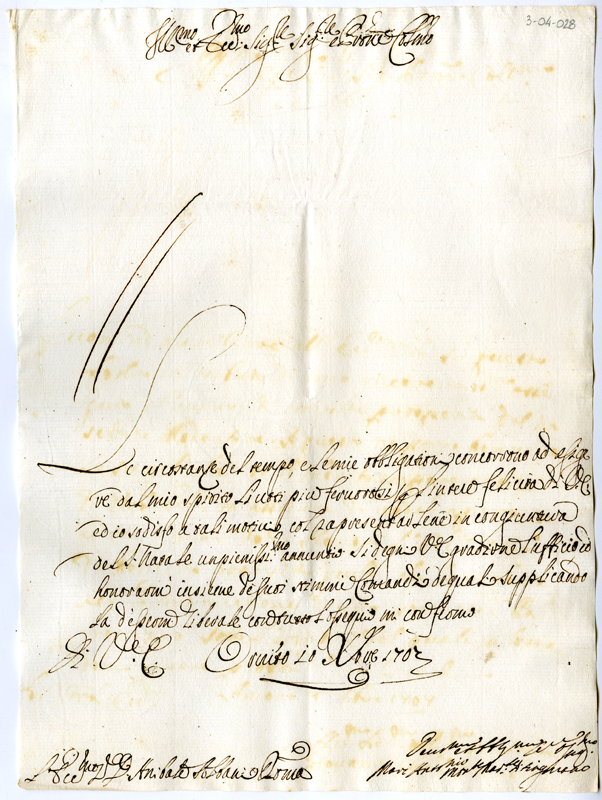 3-04-028
Ill.mo et Ecc.mo Sig.re Sig.re e P.rone Col.mo
Le circostanze del tempo, e le mie obbligationi concorrono ad esige
re dal mio spirito li voti più fervorosi p l'intere felicità di V.E.
ed io sodisfo a tali motivi, col rapresentarlene in congiuntura
del S. Natale un pieniss.mo annuntio si degni V.E. gradirne l'ufficio, ed
honorarmi insieme de suoi stimmi Comandi de quali supplicando
la con tutto l'ossequio mi confermo
Di V.E. 10 Xbre 1707
Ecc.mo Anibale Albani Roma
Mar. Ant.